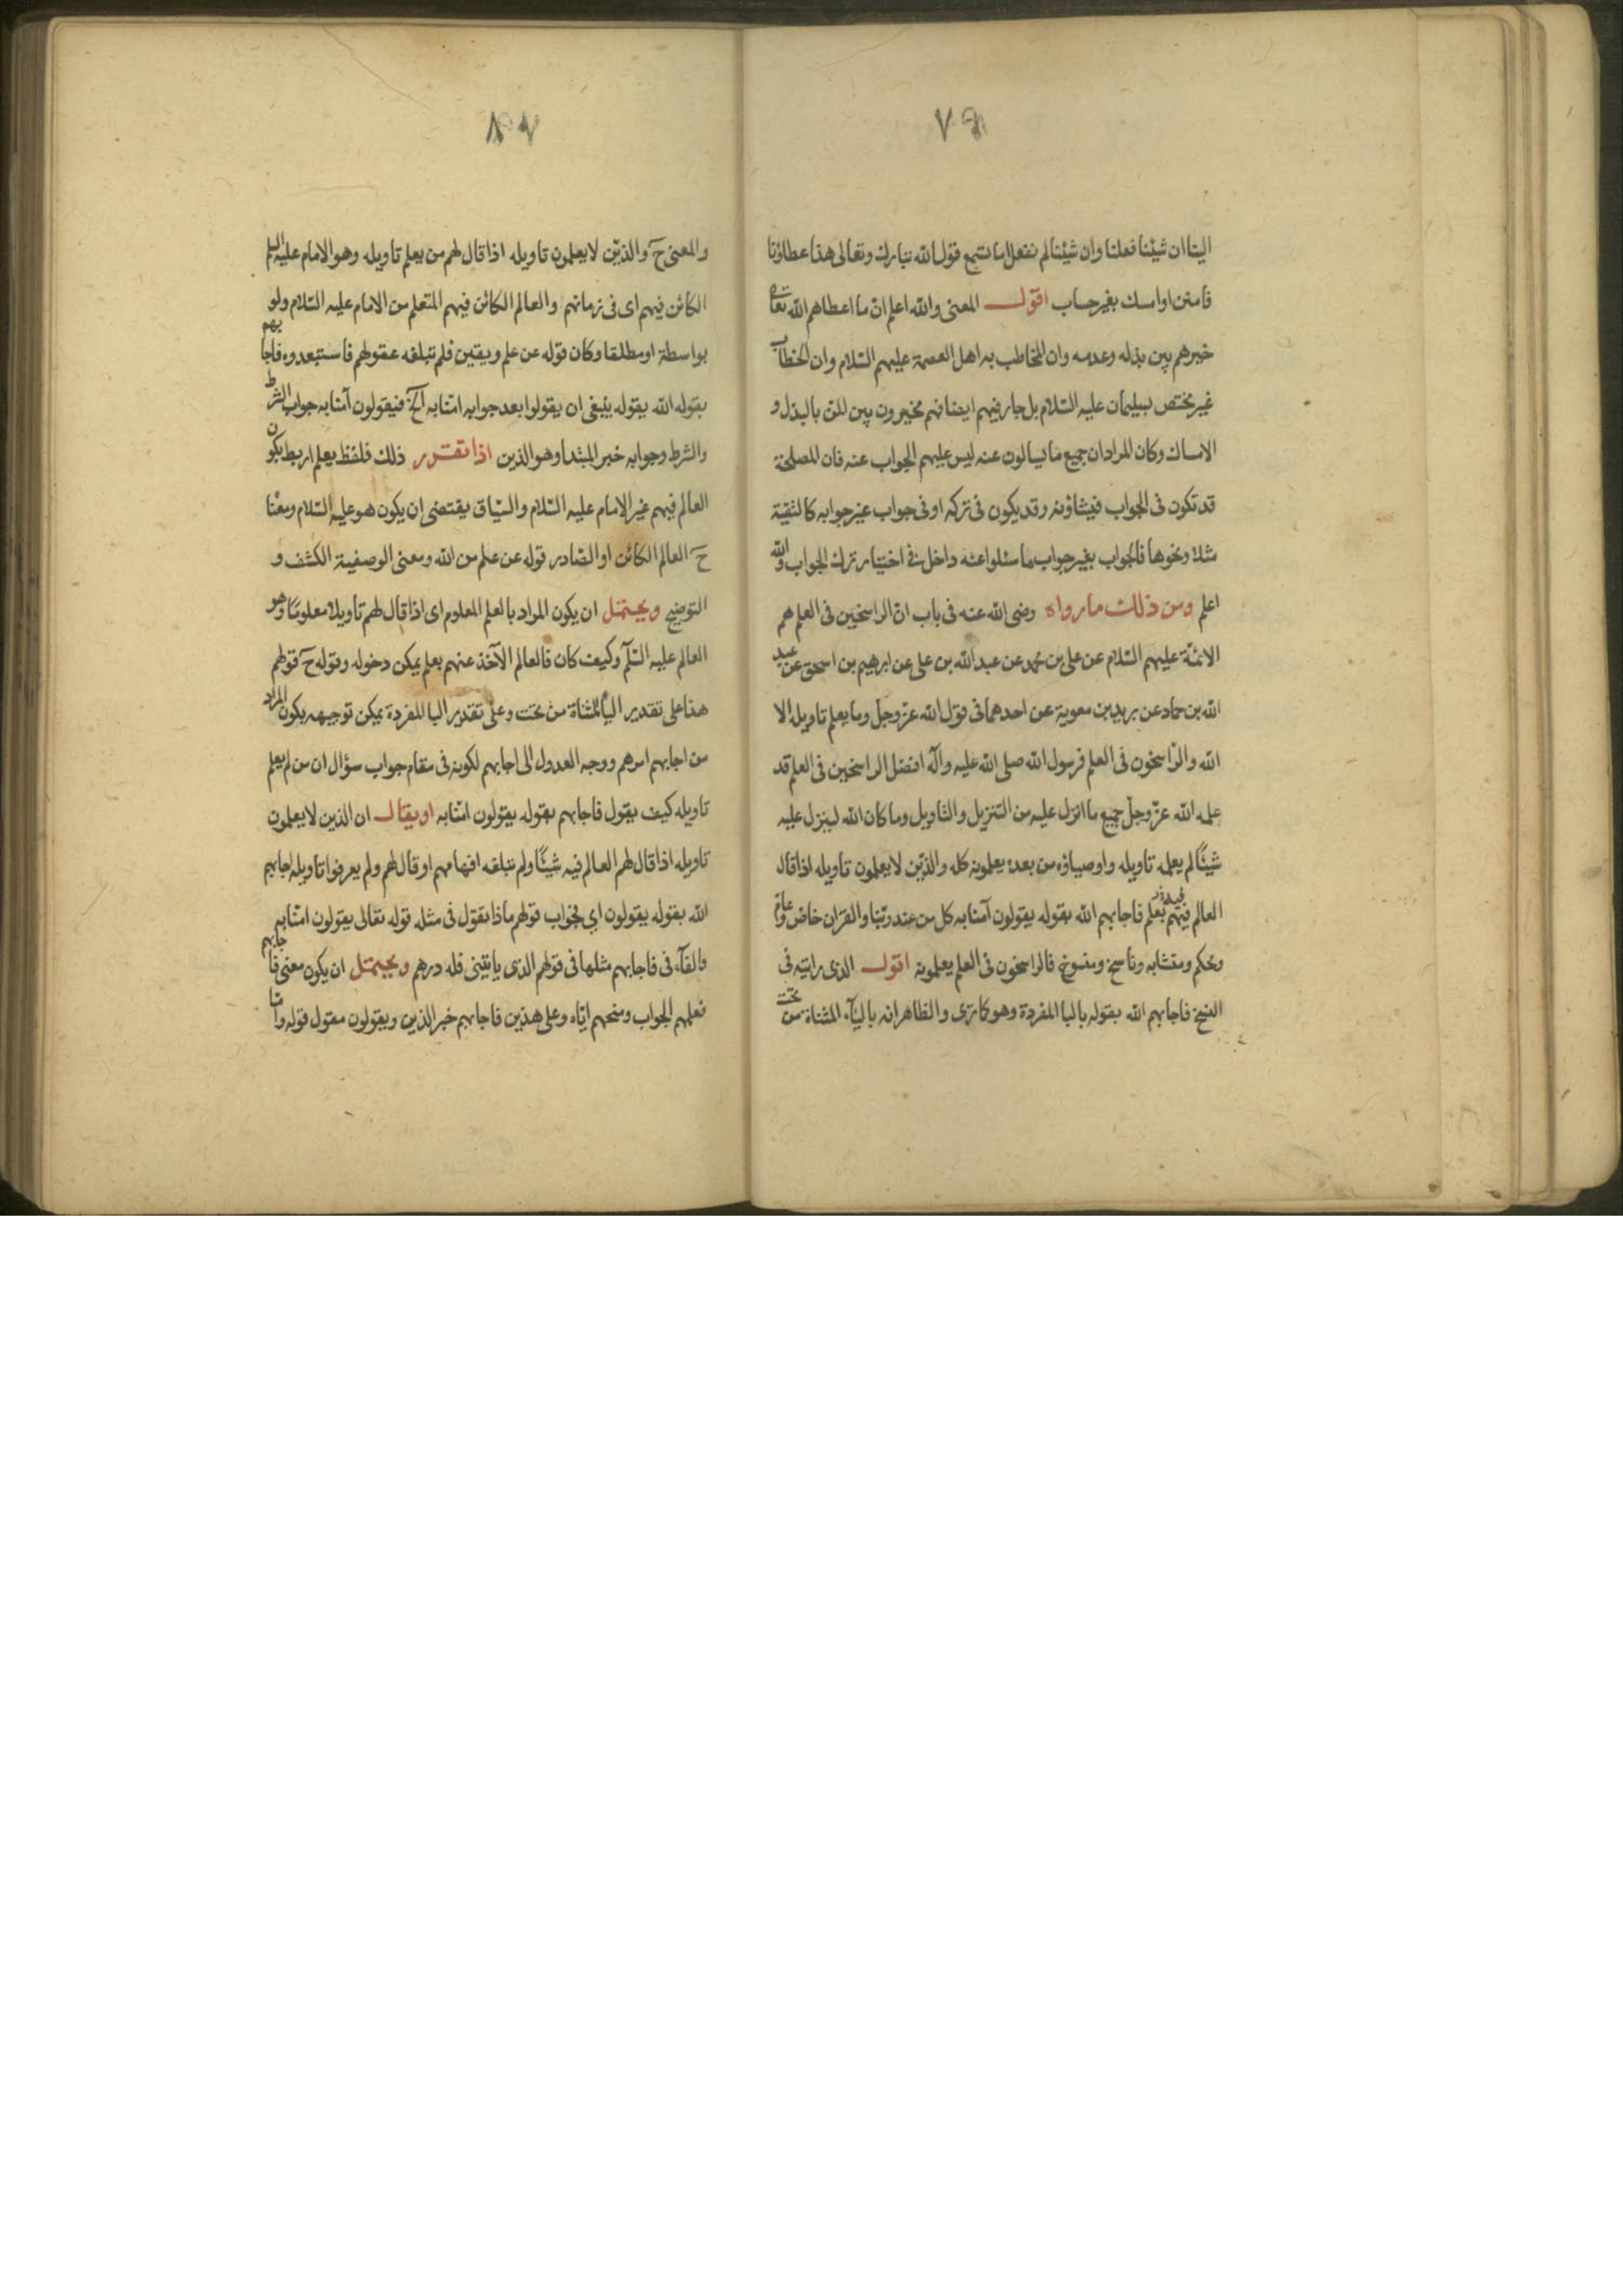 ٧٩
الينا ان شئنا فعلنا وان شئنا لم نفعل اما تسمع قول الله تبارك وتعالى هذا عطاؤنا
فامنن او امسك بغير حساب اقول المعنى والله اعلم ان ما اعطاهم الله تعالى
خيرهم بين بذله وعدمه وان المخاطب به اهل العصمة عليهم السلام وان الخطاب
غير مختص بسليمان عليه السلام بل جار فيهم ايضا فهم مخيرون بين المن بالبذل و
الامساك وكان المراد ان جميع ما يسالون عنه ليس عليهم الجواب عنه فان المصلحة
قد تكون فى الجواب فيشاؤنه وقد يكون فى تركه او فى جواب غير جوابه كالتقية
مثلا ونحوها فالجواب بغير جواب ما سئلوا عنه داخل فى اختيار ترك الجواب والله
اعلم ومن ذلك ما رواه رضى الله عنه فى باب ان الراسخين فى العلم هم
الائمة عليهم السلام عن على بن محمد عن عبد الله بن على عن ابرهيم بن اسحق عن عبد
الله بن حماد عن بريد بن معوية عن احدهما فى قول الله عز وجل وما يعلم تاويله الا
الله والراسخون فى العلم فرسول الله صلى الله عليه واله افضل الراسخين فى العلم قد
علمه الله عز وجل جميع ما انزل عليه من التنزيل والتاويل وما كان الله لينزل عليه
شيئا لم يعلمه تاويله واوصياؤه من بعده يعلمونه كله والذين لا يعلمون تاويله اذا قال
العالم فيهم بعلم فاجابهم الله بقوله يقولون آمنا به كل من عند ربنا والقران خاص وعام
ومحكم ومتشابه وناسخ ومنسوخ فالراسخون فى العلم يعلمونه اقول الذى رايته فى
النسخ فاجابهم الله بقوله بالبا المفردة وهو كما ترى والظاهر انه باليآء المثناة من تحت
٨٠
والمعنى ح والذين لا يعلمون تاويله اذا قال لهم من يعلم تاويله وهو الامام عليه السلم
الكائن فيهم اى فى زمانهم والعالم الكائن فيهم المتعلم من الامام عليه السلام ولو
بواسطة او مطلقا وكان قوله عن علم ويقين فلم تبلغه عقولهم فاستبعدوه فاجابهم
بقوله الله يقوله ينبغى ان يقولوا بعد جوابه امنا به الخ فيقولون آمنا به جواب الشرط
والشرط وجوابه خبر المبتدا وهو الذين اذا تقرر ذلك فلفظ يعلم اربط بكون
العالم فيهم غير الامام عليه السلام والسياق يقتضى ان يكون هو عليه السلام ومعنا
ح العالم الكائن او الصادر قوله عن علم من الله ومعنى الوصفية الكشف و
التوضيح ويحتمل ان يكون المراد بالعلم المعلوم اى اذا قال لهم تاويلا معلوما وهو
العالم عليه السلم وكيف كان فالعالم الآخذ عنهم بعلم يمكن دخوله وقوله ح قولهم
هذا على تقدير اليا المثناة من تحت وعلى تقدير البا المفردة يمكن توجيهه بكون المراد
من اجابهم امرهم ووجه العدول الى اجابهم لكونه فى مقام جواب سؤال ان من لم يعلم
تاويله كيف يقول فاجابهم بقوله يقولون امنا به او يقال ان الذين لا يعلمون
تاويله اذا قال لهم العالم فيه شيئا ولم تبلغه افهامهم او قال لهم ولم يعرفوا تاويله اجابهم
الله بقوله يقولون اى جواب قولهم ماذا نقول فى مثله قوله تعالى يقولون امنا به
والفآء فى فاجابهم مثلها فى قولهم الذى ياتينى فله درهم ويحتمل ان يكون معنى فاجابهم
فعلمهم الجواب ومنحهم اياه وعلى هذين فاجابهم خبر الذين ويقولون مقول قوله واما